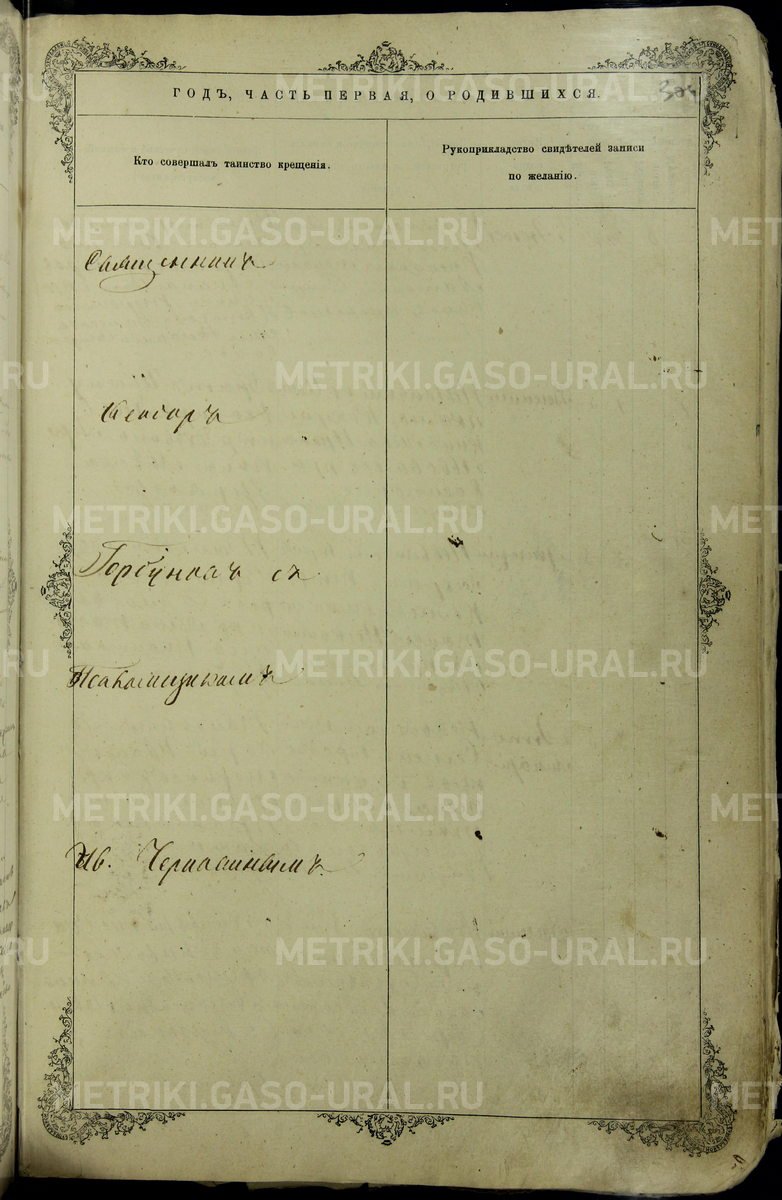 ГОДЪ, ЧАСТЬ ПЕРВАЯ, О РОДИВШИХСЯ.
Кто совершалъ таинство крещенія.
Рукоприкладство свидѣтелей записи
по желанію.
Священникъ
Ѳеодоръ
Горбуновъ съ
Псаломщикомъ
Ив. Черпасинымъ
METRIKI.GASO-URAL.RU